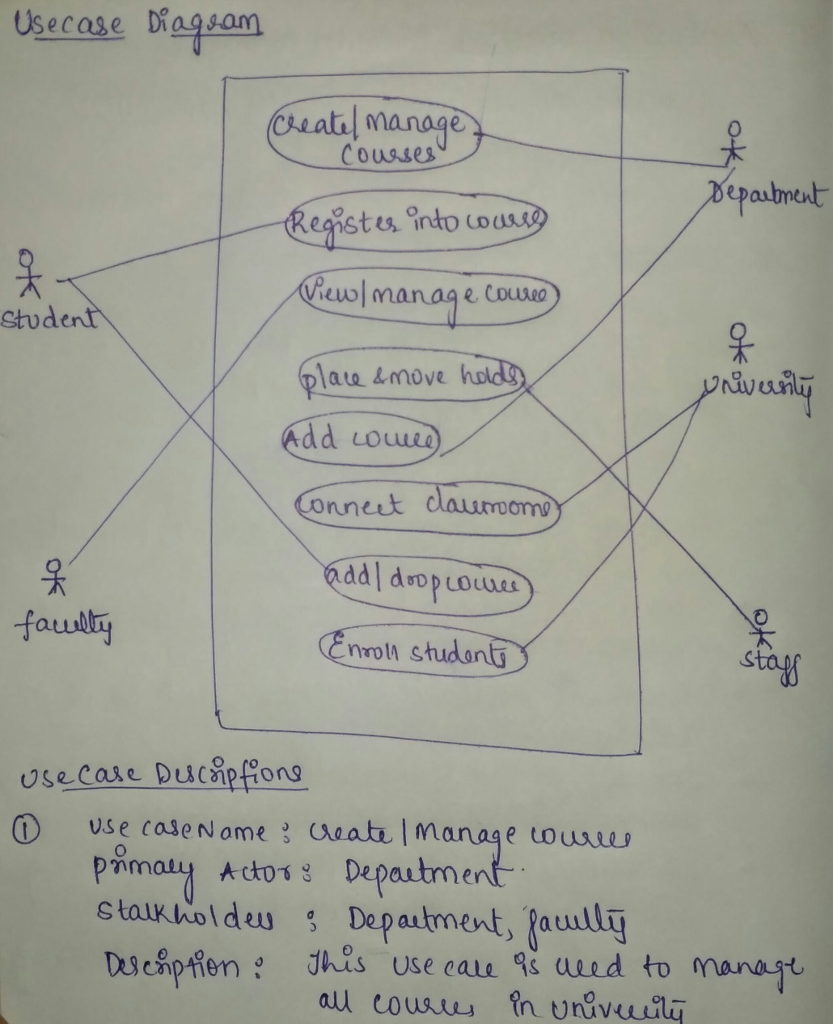 Usecase Diagram
Create/manage
courses
Department
Register into course
Student
View/manage course
University
place & move holds
Add course
connect classrooms
add/drop course
faculty
Enroll students
staff
Use Case Descriptions
① Use case Name : Create/Manage courses
Primary Actor : Department.
Stalkholders : Department, faculty
Description : This use case is used to manage
all courses in university